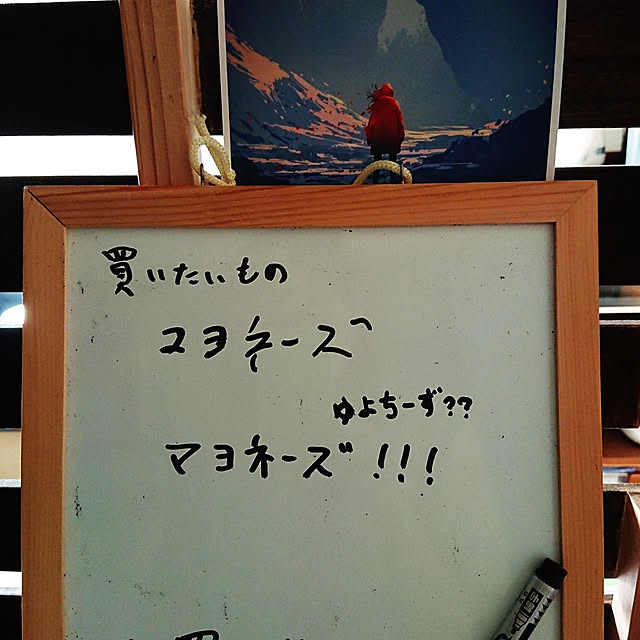 買いたいもの
コヨネーズ
ゆよちーず??
マヨネーズ!!!
買